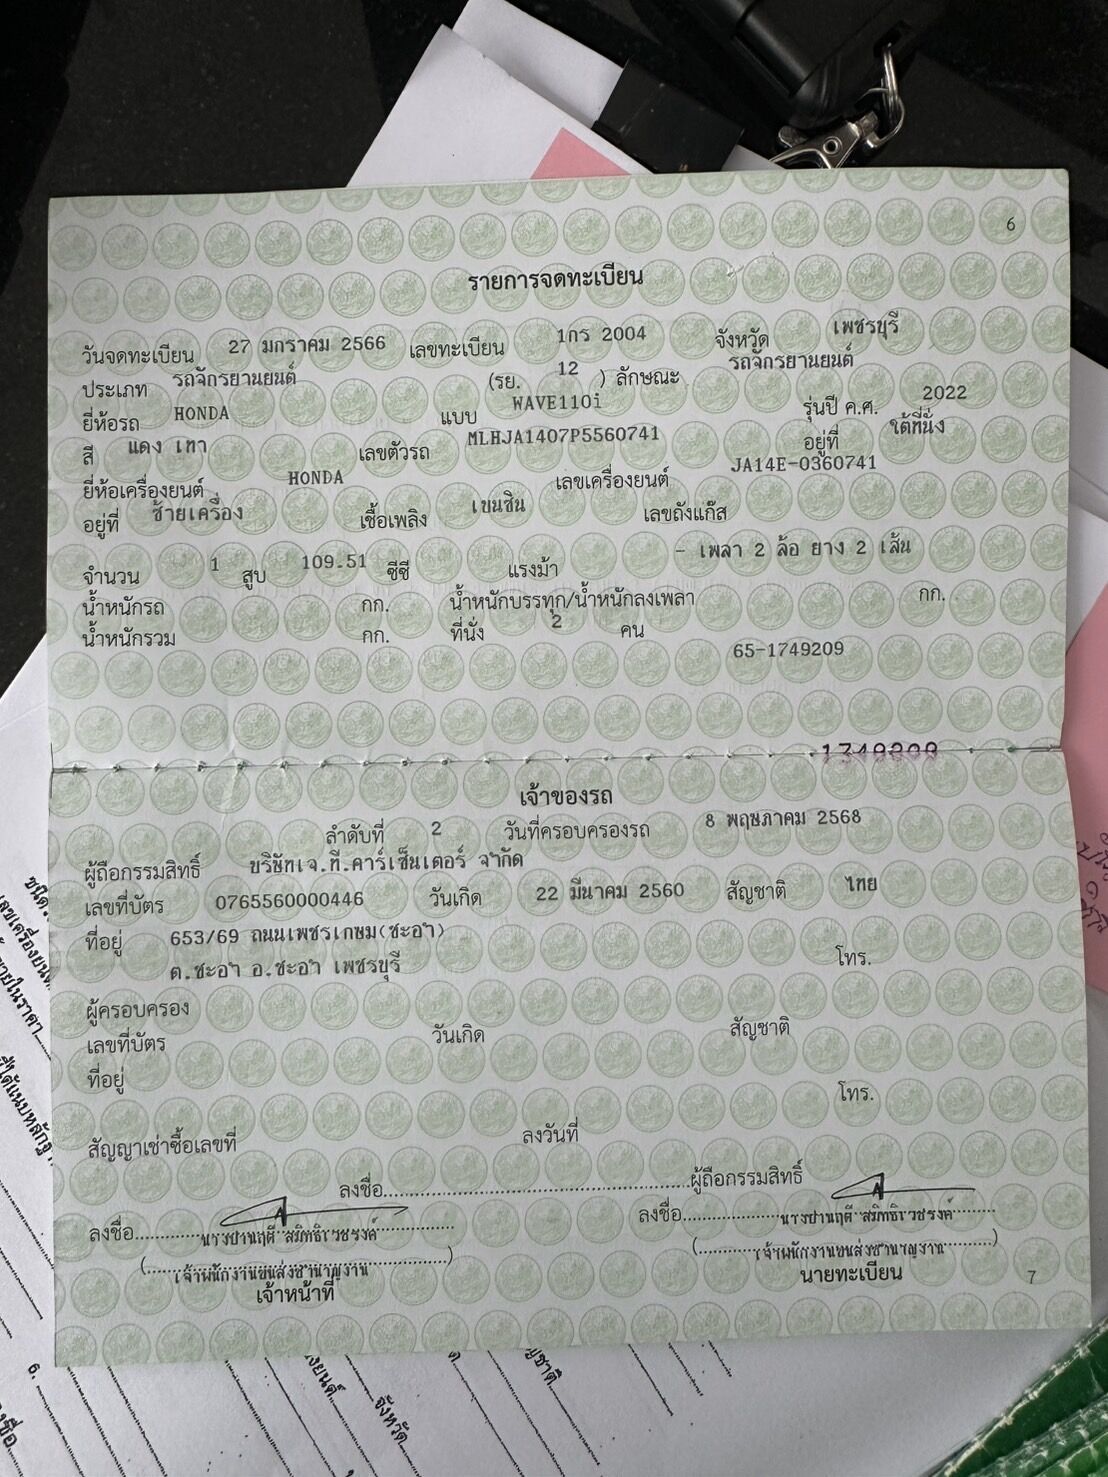 6
รายการจดทะเบียน
วันจดทะเบียน 27 มกราคม 2566 เลขทะเบียน 1กร 2004 จังหวัด เพชรบุรี
ประเภท รถจักรยานยนต์ (รย. 12 ) ลักษณะ รถจักรยานยนต์
ยี่ห้อรถ HONDA แบบ WAVE110i รุ่นปี ค.ศ. 2022
สี แดง เทา เลขตัวรถ MLHJA1407P5560741 อยู่ที่ ใต้ที่นั่ง
ยี่ห้อเครื่องยนต์ HONDA เลขเครื่องยนต์ JA14E-0360741
อยู่ที่ ซ้ายเครื่อง เชื้อเพลิง เบนซิน เลขถังแก๊ส
จำนวน 1 สูบ 109.51 ซีซี แรงม้า - เพลา 2 ล้อ ยาง 2 เส้น
น้ำหนักรถ กก. น้ำหนักบรรทุก/น้ำหนักลงเพลา กก.
น้ำหนักรวม กก. ที่นั่ง 2 คน
65-1749209
เจ้าของรถ
ลำดับที่ 2 วันที่ครอบครองรถ 8 พฤษภาคม 2568
ผู้ถือกรรมสิทธิ์ บริษัทเจ.ที.คาร์เซ็นเตอร์ จำกัด
เลขที่บัตร 0765560000446 วันเกิด 22 มีนาคม 2560 สัญชาติ ไทย
ที่อยู่ 653/69 ถนนเพชรเกษม(ชะอำ)
ต.ชะอำ อ.ชะอำ เพชรบุรี โทร.
ผู้ครอบครอง
เลขที่บัตร วันเกิด สัญชาติ
ที่อยู่
โทร.
สัญญาเช่าซื้อเลขที่ ลงวันที่
ลงชื่อ ผู้ถือกรรมสิทธิ์
ลงชื่อ ลงชื่อ
(เจ้าพนักงานขนส่งชำนาญงาน) (เจ้าพนักงานขนส่งชำนาญงาน)
เจ้าหน้าที่ นายทะเบียน
7
จังหวัด
6.